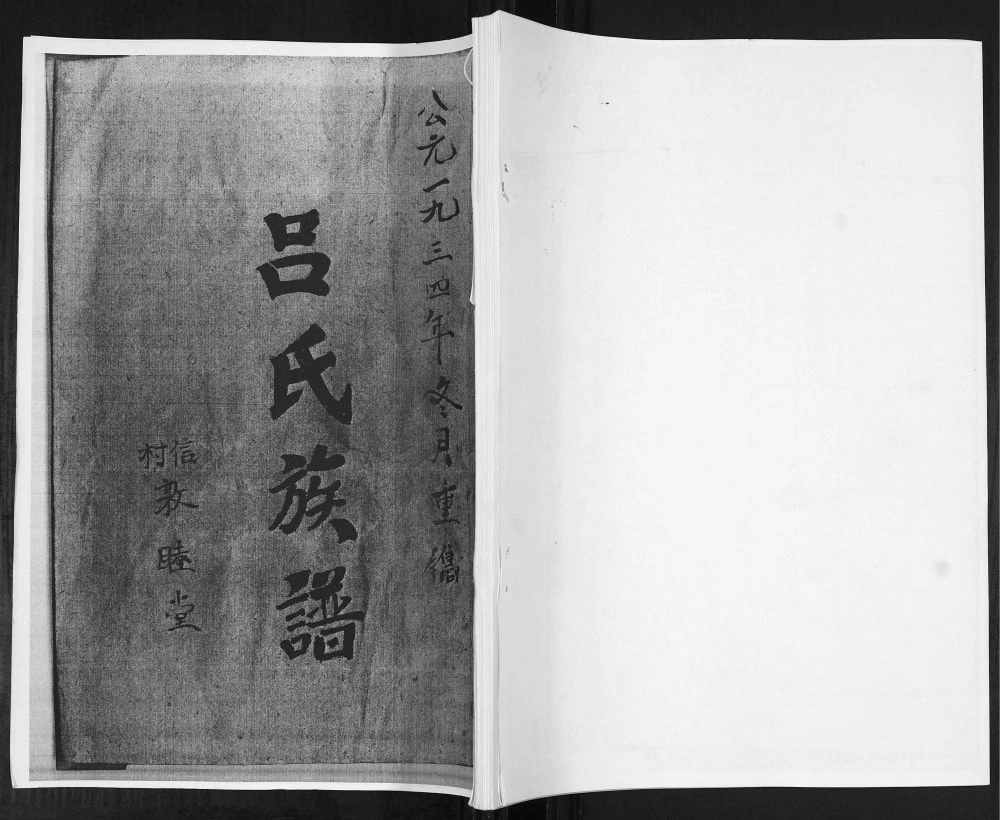 公元一九三四年冬月重鐫
呂氏族譜
信村敦睦堂